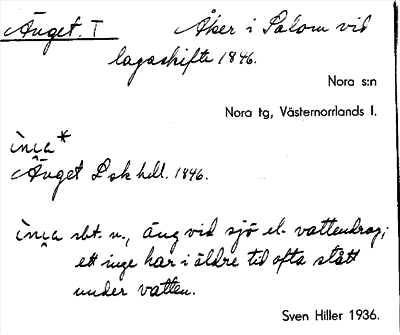 Änget. T Åker i Salom vid
lagaskifte 1846.
Nora s:n
Nora tg, Västernorrlands l.
Änget L sk hdl. 1846.
sbt. n., äng vid sjö el. vattendrag;
ett inge har i äldre tid ofta stått
under vatten.
Sven Hiller 1936.